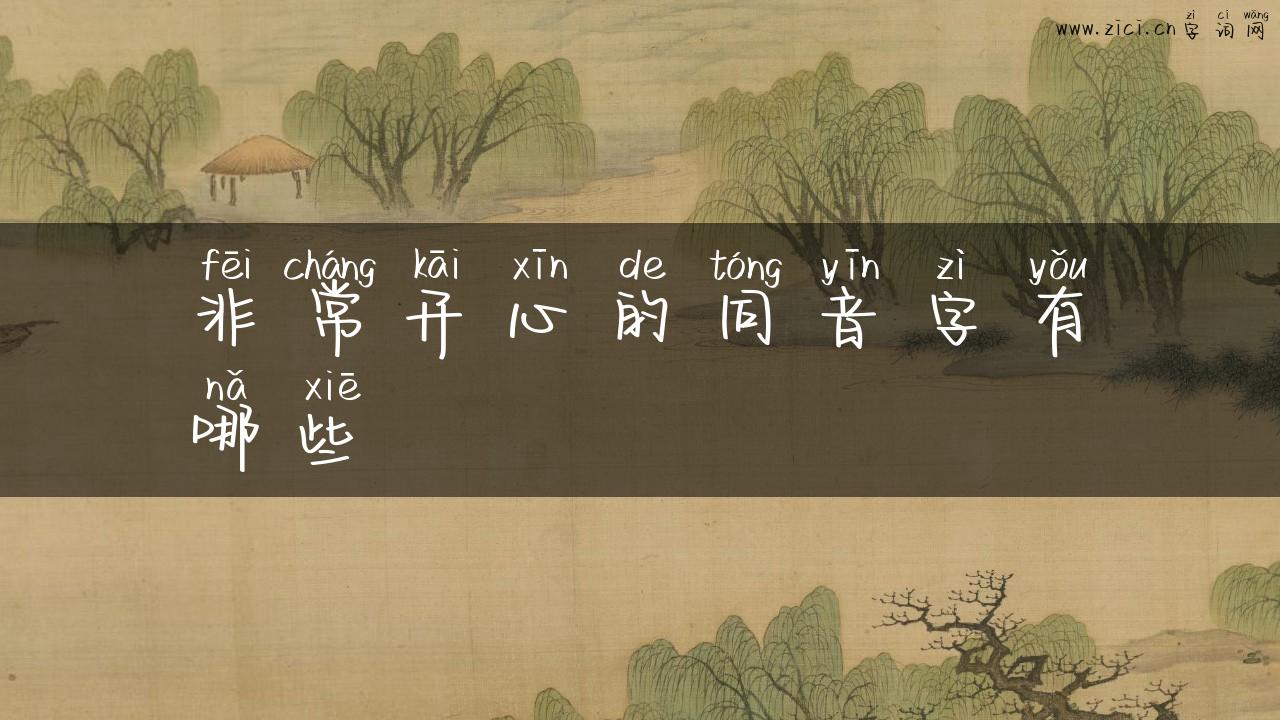 zì cí wǎng
www.zici.cn 字 词 网
fēi cháng kāi xīn de tóng yīn zì yǒu
非 常 开 心 的 同 音 字 有
nǎ xiē
哪 些